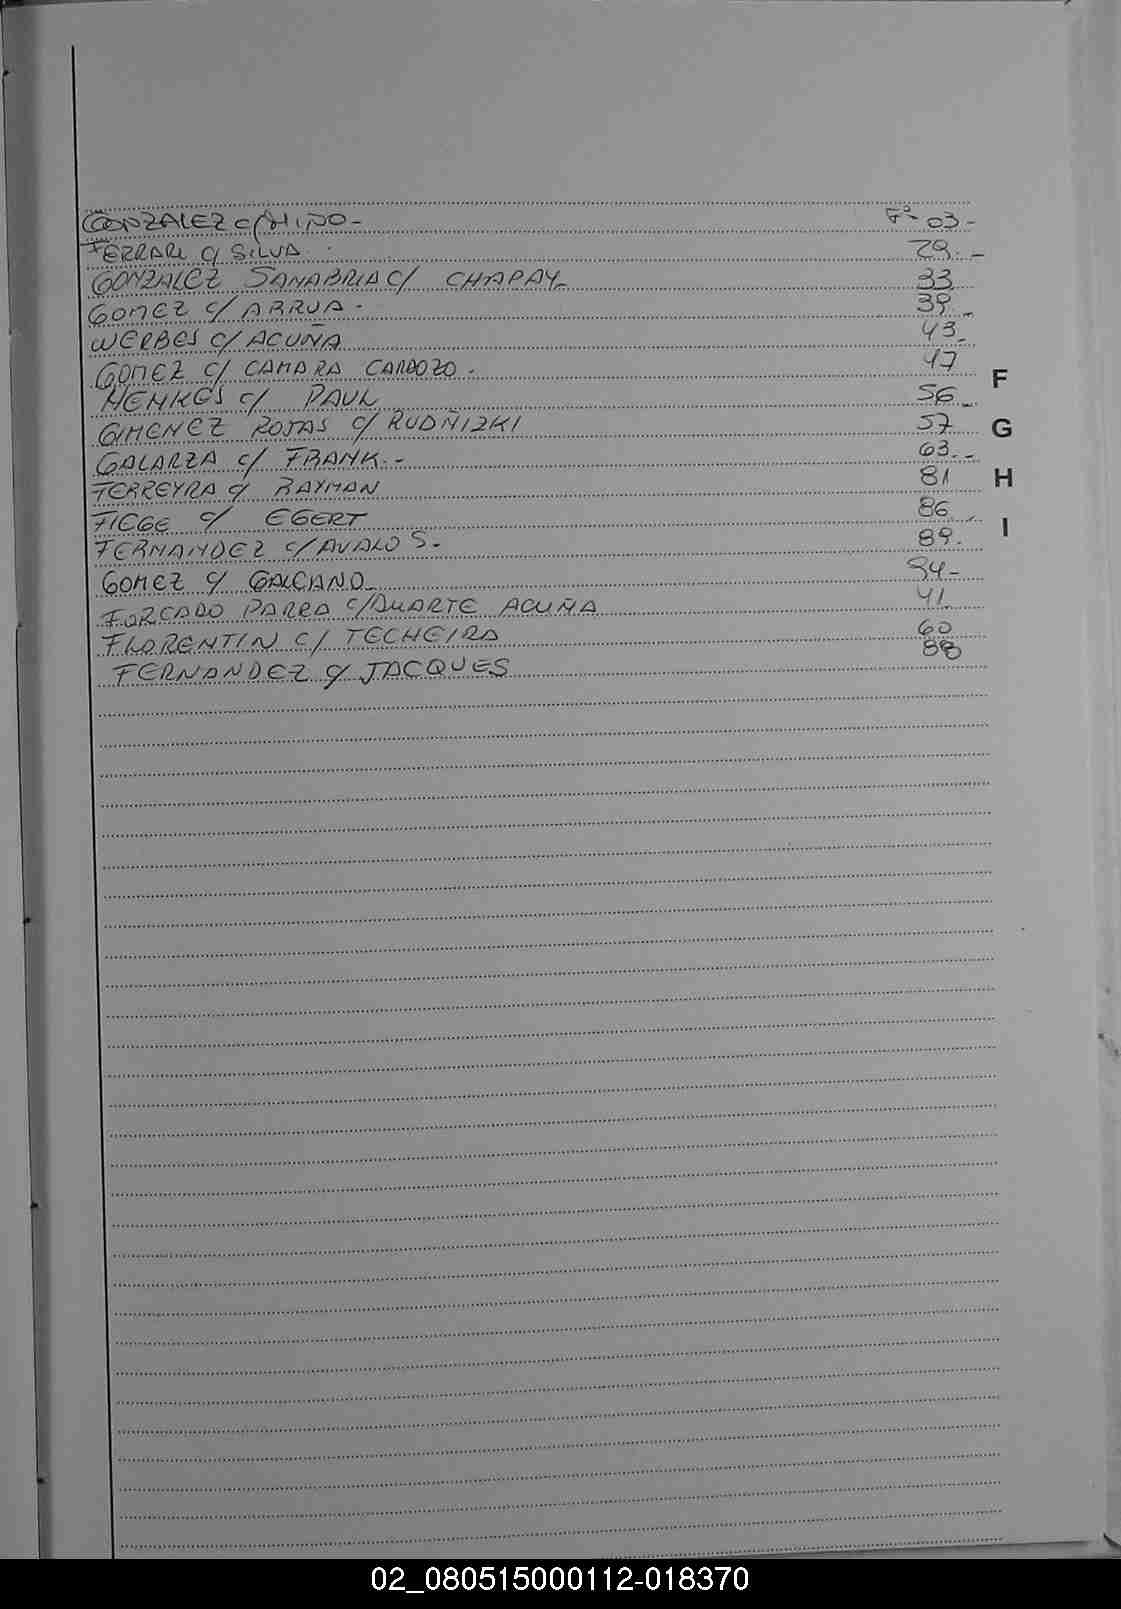 GONZALEZ c/ MIÑO - Fº 03 -
FERRARI c/ SILVA 29. -
GONZALEZ SANABRIA c/ CHAPAY - 33
GOMEZ c/ ARRUA - 39 -
WERBES c/ ACUÑA 43 -
GOMEZ c/ CAMARA CARDOZO - 47
HENKES c/ PAUL 56 -
GIMENEZ ROJAS c/ RUDÑIZKI 57
GALARZA c/ FRANK - - 63. -
FERREYRA c/ RAYMAN 81
FIEGE c/ EGERT 86 -
FERNANDEZ c/ AVALOS - 89.
GOMEZ c/ GALEANO 94 -
FORCADO PARRA c/ DUARTE ACUÑA 41
FLORENTIN c/ TECHEIRA 60
FERNANDEZ c/ JACQUES 88
F
G
H
I
02_080515000112-018370